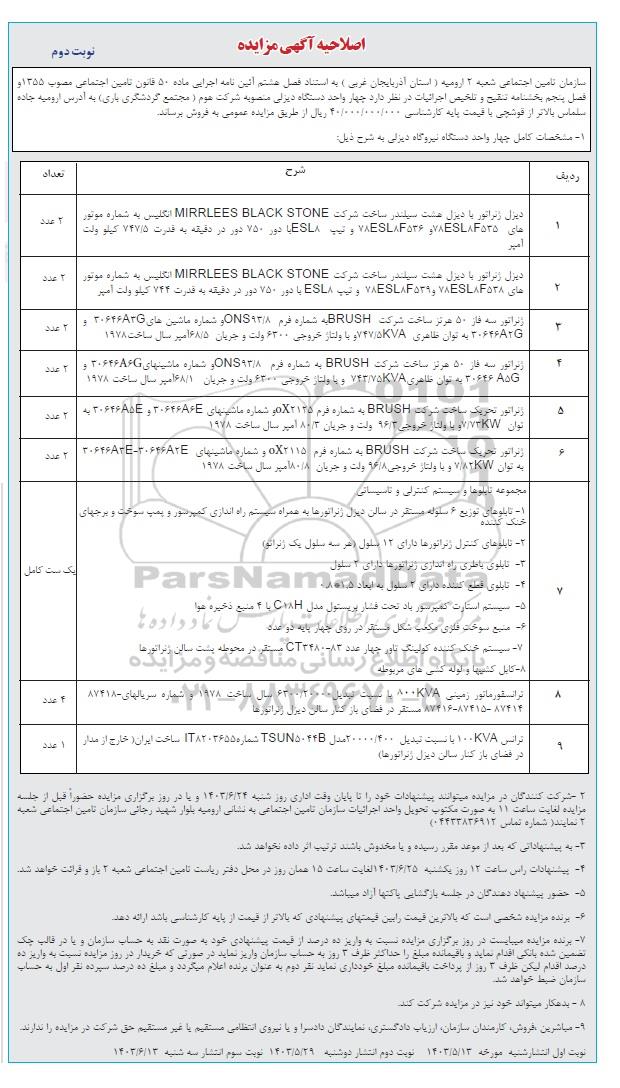 اصلاحیه آگهی مزایده
نوبت دوم
سازمان تامین اجتماعی شعبه ۲ ارومیه ( استان آذربایجان غربی ) به استناد فصل هشتم آئین نامه اجرایی ماده ۵۰ قانون تامین اجتماعی مصوب ۱۳۵۵و
فصل پنجم بخشنامه تنقیح و تلخیص اجرائیات در نظر دارد چهار واحد دستگاه دیزلی منصوبه شرکت هوم ( مجتمع گردشگری باری) به آدرس ارومیه جاده
سلماس بالاتر از قوشچی با قیمت پایه کارشناسی ۴۰/۰۰۰/۰۰۰/۰۰۰ ریال از طریق مزایده عمومی به فروش برساند.
۱- مشخصات کامل چهار واحد دستگاه نیروگاه دیزلی به شرح ذیل:
ردیف شرح تعداد
۱ دیزل ژنراتور با دیزل هشت سیلندر ساخت شرکت MIRRLEES BLACK STONE انگلیس به شماره موتور ۲ عدد
های ۷۸ESL۸F۵۳۵و ۷۸ESL۸F۵۳۶ و تیپ ESL۸با دور ۷۵۰ دور در دقیقه به قدرت ۷۴۷/۵ کیلو ولت
آمپر
۲ دیزل ژنراتور با دیزل هشت سیلندر ساخت شرکت MIRRLEES BLACK STONE انگلیس به شماره موتور ۲ عدد
های ۷۸ESL۸F۵۳۸ و۷۸ESL۸F۵۳۹ و تیپ ESL۸ با دور ۷۵۰ دور در دقیقه به قدرت ۷۴۴ کیلو ولت آمپر
۳ ژنراتور سه فاز ۵۰ هرتز ساخت شرکت BRUSHبه شماره فرم ONS۹۳/۸و شماره ماشین های۳۰۶۴۶A۳G و ۲ عدد
۳۰۶۴۶A۲G به توان ظاهری ۷۴۷/۵KVAو با ولتاژ خروجی ۶۳۰۰ ولت و جریان ۶۸/۵آمپر سال ساخت۱۹۷۸
۴ ژنراتور سه فاز ۵۰ هرتز ساخت شرکت BRUSH به شماره فرم ONS۹۳/۸و شماره ماشینهای۳۰۶۴۶A۶G و ۲ عدد
۳۰۶۴۶ A۵G به توان ظاهری۷۴۳/۷۵KVA و با ولتاژ خروجی ۶۳۰۰ ولت و جریان ۶۸/۱آمپر سال ساخت ۱۹۷۸
۵ ژنراتور تحریک ساخت شرکت BRUSH به شماره فرم oX۲۱۲۵و شماره ماشینهای ۳۰۶۴۶A۶E و ۳۰۶۴۶A۵E به ۲ عدد
توان ۷/۷۳KWو با ولتاژ خروجی۹۶/۳ ولت و جریان ۸۰/۳ آمپر سال ساخت ۱۹۷۸
۶ ژنراتور تحریک ساخت شرکت BRUSH به شماره فرم oX۲۱۱۵ و شماره ماشینهای ۳۰۶۴۶A۳E-۳۰۶۴۶A۲E ۲ عدد
به توان ۷/۸۲KW و با ولتاژ خروجی۹۶/۸ ولت و جریان ۸۰/۸آمپر سال ساخت ۱۹۷۸
مجموعه تابلوها و سیستم کنترلی و تاسیساتی
۱- تابلوهای توزیع ۶ سلوله مستقر در سالن دیزل ژنراتورها به همراه سیستم راه اندازی کمپرسور و پمپ سوخت و برجهای
خنک کننده
۲- تابلوهای کنترل ژنراتورها دارای ۱۲ سلول (هر سه سلول یک ژنراتو)
۳- تابلوی باطری راه اندازی ژنراتورها دارای ۲ سلول یک ست کامل
۴- تابلوی قطع کننده دارای ۲ سلول به ابعاد
۷ ۵- سیستم استارت کمپرسور باد تحت فشار پریستول مدل C۱۸H با ۴ منبع ذخیره هوا
۶- منبع سوخت فلزی مکعب شکل مستقر در روی چهار پایه دو عدد
۷- سیستم خنک کننده کولینگ تاور چهار عدد CT۳۴۸۰-۸۳ مستقر در محوطه پشت سالن ژنراتورها
۸-کابل کشیها و لوله کشی های مربوطه
۸ ترانسفورماتور زمینی ۸۰۰KVA با نسبت تبدیل۶۳۰۰/۲۰۰۰۰ سال ساخت ۱۹۷۸ و شماره سریالهای۸۷۴۱۸- ۴ عدد
۸۷۴۱۶-۸۷۴۱۵- ۸۷۴۱۴ مستقر در فضای باز کنار سالن دیزل ژنراتورها
۹ ترانس ۱۰۰KVA با نسبت تبدیل ۲۰۰۰۰/۴۰۰مدل TSUN۵۰۴۴B شمارهIT۸۲۰۳۶۵۵ ساخت ایران( خارج از مدار ۱ عدد
در فضای باز کنار سالن دیزل ژنراتورها)
۲ -شرکت کنندگان در مزایده میتوانند پیشنهادات خود را تا پایان وقت اداری روز شنبه ۱۴۰۳/۶/۲۴ و یا در روز برگزاری مزایده حضوراً قبل از جلسه
مزایده لغایت ساعت ۱۱ به صورت مکتوب تحویل واحد اجرائیات سازمان تامین اجتماعی به نشانی ارومیه بلوار شهید رجائی سازمان تامین اجتماعی شعبه
۲ نمایند( شماره تماس ۰۴۴۳۳۸۳۶۹۱۲)
۳- به پیشنهاداتی که بعد از موعد مقرر رسیده و یا مخدوش باشند ترتیب اثر داده نخواهد شد.
۴- پیشنهادات راس ساعت ۱۲ روز یکشنبه ۱۴۰۳/۶/۲۵لغایت ساعت ۱۵ همان روز در محل دفتر ریاست تامین اجتماعی شعبه ۲ باز و قرائت خواهد شد.
۵- حضور پیشنهاد دهندگان در جلسه بازگشایی پاکتها آزاد میباشد.
۶- برنده مزایده شخصی است که بالاترین قیمت رابین قیمتهای پیشنهادی که بالاتر از قیمت از پایه کارشناسی باشد ارائه دهد.
۷- برنده مزایده میبایست در روز برگزاری مزایده نسبت به واریز ده درصد از قیمت پیشنهادی خود به صورت نقد به حساب سازمان و یا در قالب چک
تضمین شده بانکی اقدام نماید و باقیمانده مبلغ را حداکثر ظرف ۳ روز به حساب سازمان واریز نماید در صورتی که خریدار در روز مزایده نسبت به واریز ده
درصد اقدام لیکن ظرف ۳ روز از پرداخت باقیمانده مبلغ خودداری نماید نفر دوم به عنوان برنده اعلام میگردد و مبلغ ده درصد سپرده نفر اول به حساب
سازمان ضبط خواهد شد.
۸ - بدهکار میتواند خود نیز در مزایده شرکت کند.
۹- مباشرین ،فروش، کارمندان سازمان، ارزیاب دادگستری، نمایندگان دادسرا و یا نیروی انتظامی مستقیم یا غیر مستقیم حق شرکت در مزایده را ندارند.
نوبت اول انتشارشنبه مورخه ۱۴۰۳/۵/۱۳ نوبت دوم انتشار دوشنبه ۱۴۰۳/۵/۲۹ نوبت سوم انتشار سه شنبه ۱۴۰۳/۶/۱۳